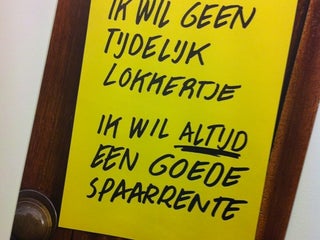 IK WIL GEEN
TIJDELIJK
LOKKERTJE
IK WIL ALTIJD
EEN GOEDE
SPAARRENTE